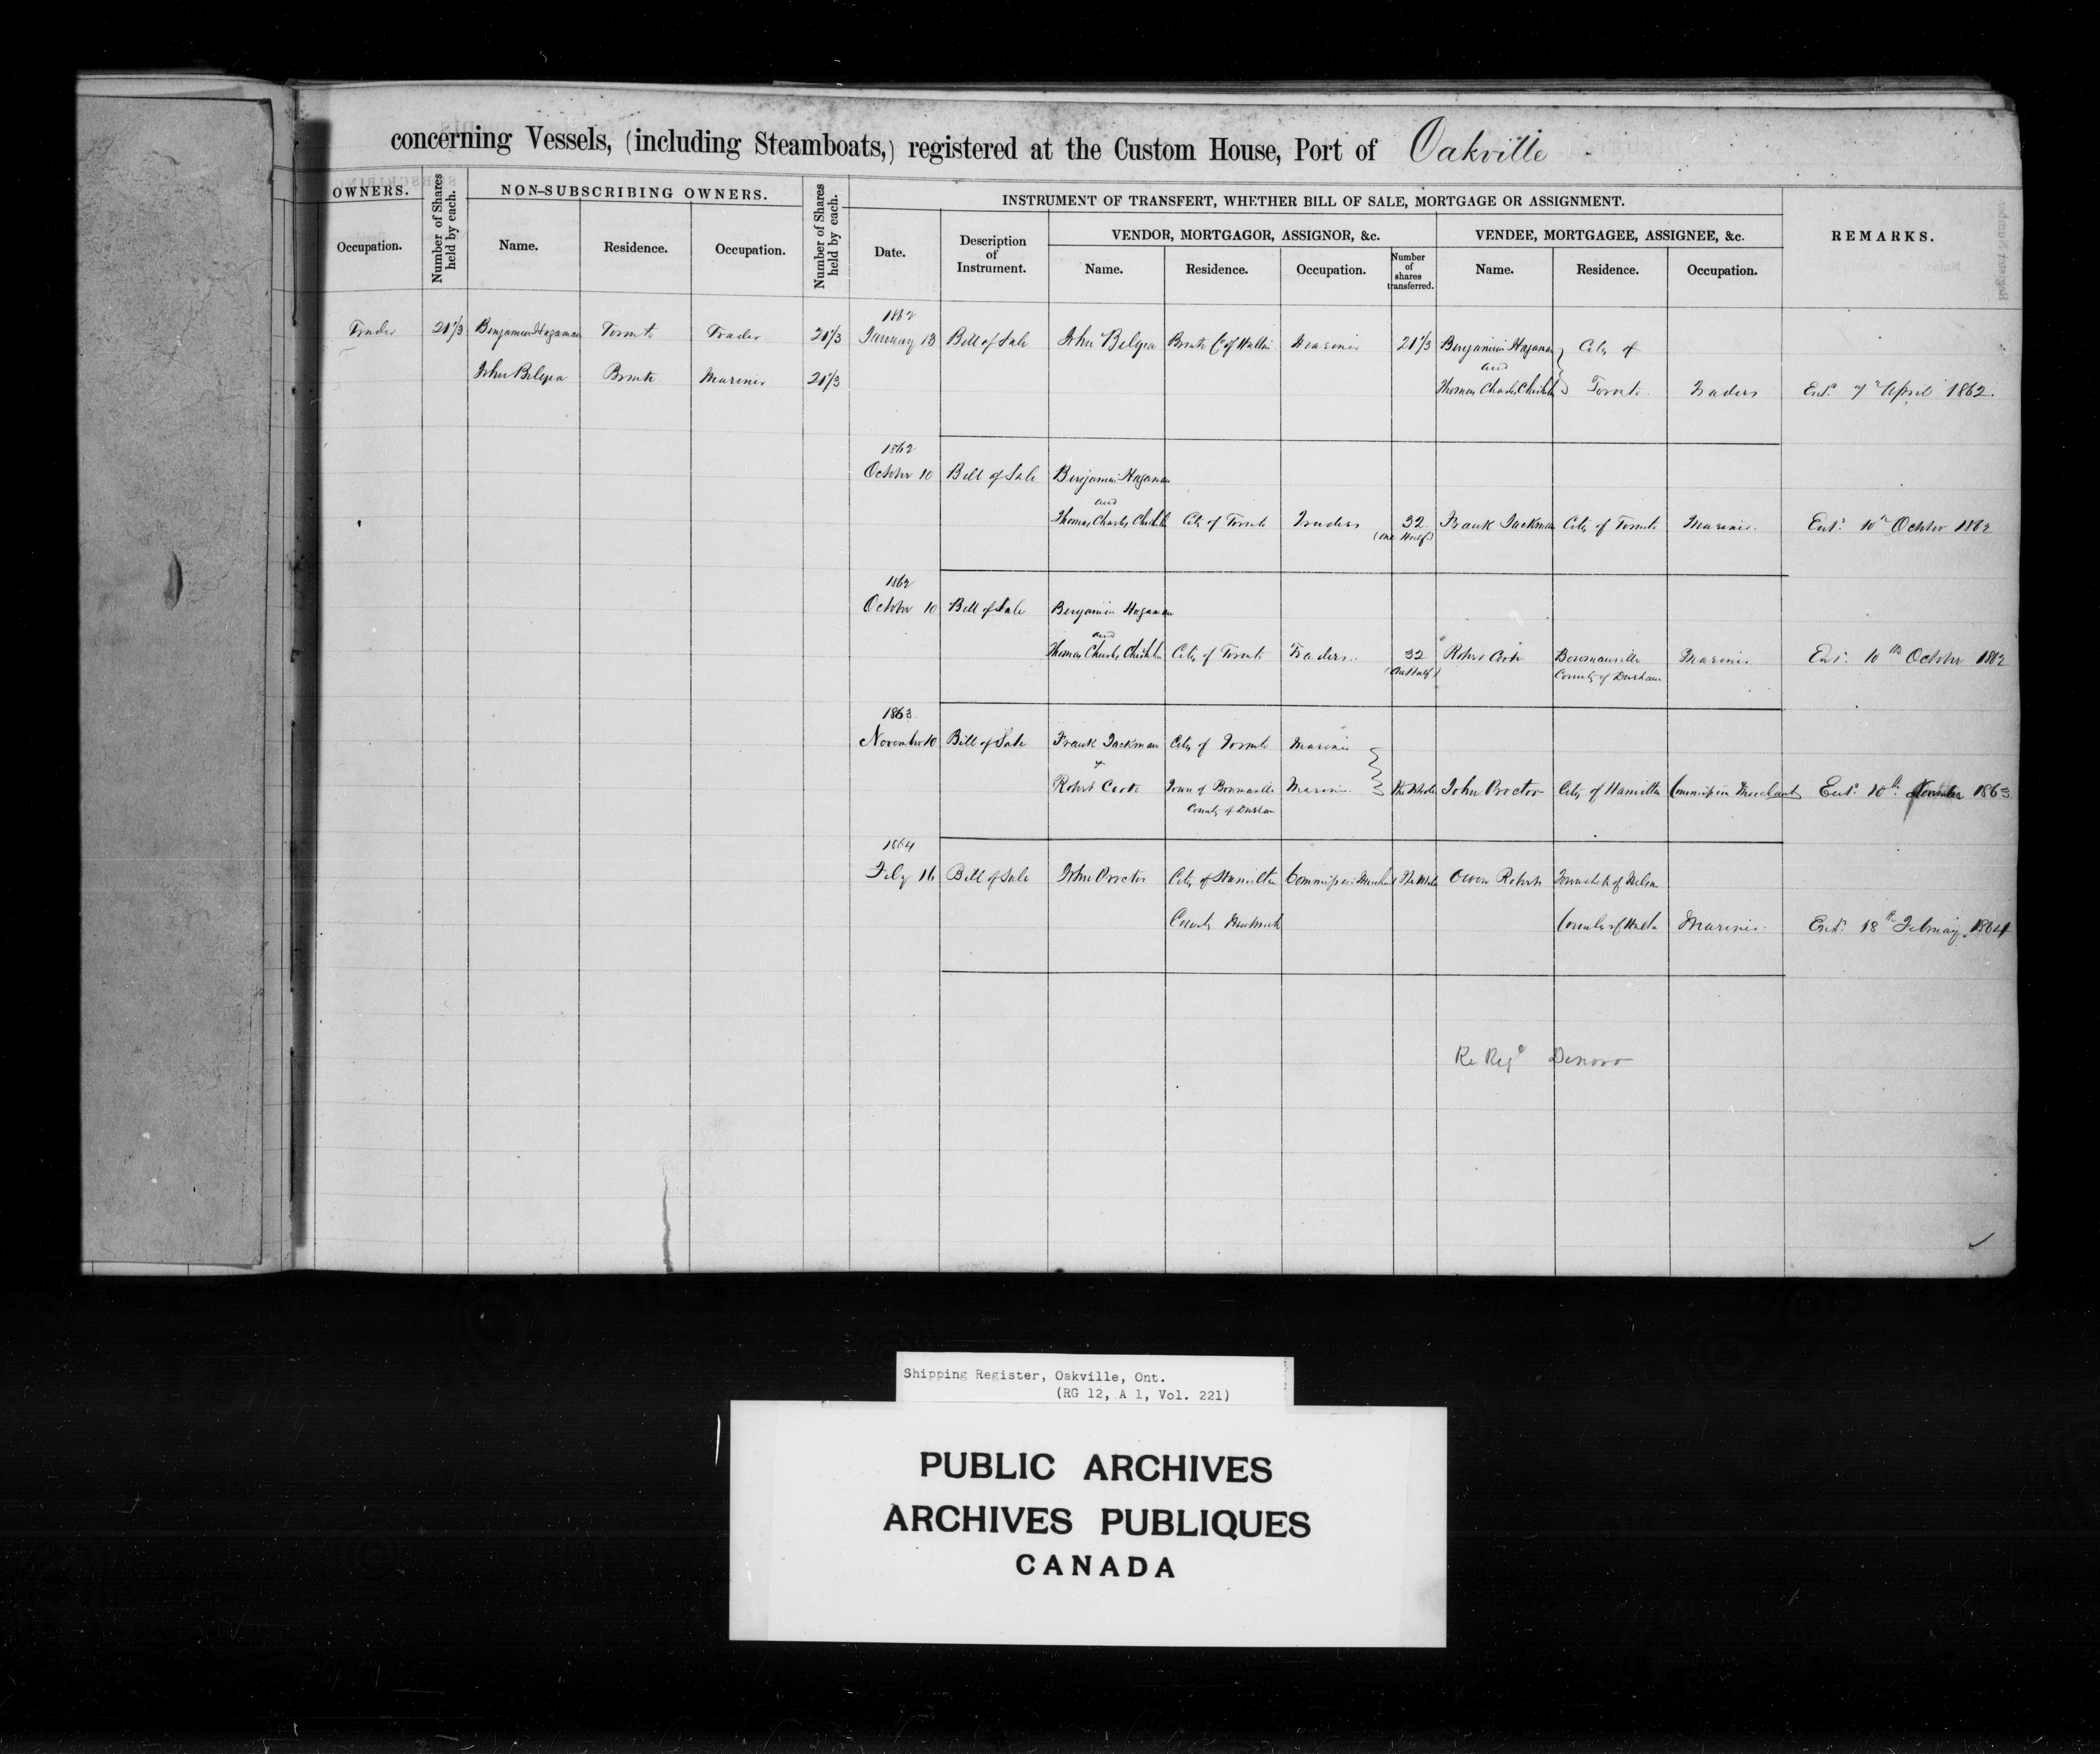 concerning Vessels, (including Steamboats,) registered at the Custom House, Port of Oakville
OWNERS.
Occupation.
Number of Shares held by each.
NON-SUBSCRIBING OWNERS.
Name.
Residence.
Occupation.
Number of Shares held by each.
INSTRUMENT OF TRANSFERT, WHETHER BILL OF SALE, MORTGAGE OR ASSIGNMENT.
Date.
Description of Instrument.
VENDOR, MORTGAGOR, ASSIGNOR, &c.
Name.
Residence.
Occupation.
Number of shares transferred.
VENDEE, MORTGAGEE, ASSIGNEE, &c.
Name.
Residence.
Occupation.
REMARKS.
1862
Trader 21 1/3 Benjamin Hagaman Toronto Trader 21 1/3 January 13 Bill of Sale John Belyea Bronte Co of Halton Mariner 21 1/3 Benjamin Hagaman City of
and
John Belyea Bronte Mariner 21 1/3 Thomas Charles Chisholm Toronto Traders Entd 7th April 1862.
1862
October 10 Bill of Sale Benjamin Hagaman
and
Thomas Charles Chisholm City of Toronto Traders 32 Frank Jackman City of Toronto Mariner. Entd 10th October 1862
(one Half)
1862
October 10 Bill of Sale Benjamin Hagaman
and
Thomas Charles Chisholm City of Toronto Traders. 32 Robert Cook Bowmanville Mariner Entd 10th October 1862
(One Half) County of Durham
1863
November 10 Bill of Sale Frank Jackman City of Toronto Mariner
&
Robert Cook Town of Bowmanville Mariner. the Whole John Proctor City of Hamilton Commission Merchant Entd 10th November 1863.
County of Durham
1864
Feby 16 Bill of Sale John Proctor City of Hamilton Commission Merchant The Whole Owen Roberts Township of Nelson
County Wentworth County of Halton Mariner. Entd 18th February 1864
Re Regd Denovo
Shipping Register, Oakville, Ont.
(RG 12, A 1, Vol. 221)
PUBLIC ARCHIVES
ARCHIVES PUBLIQUES
CANADA